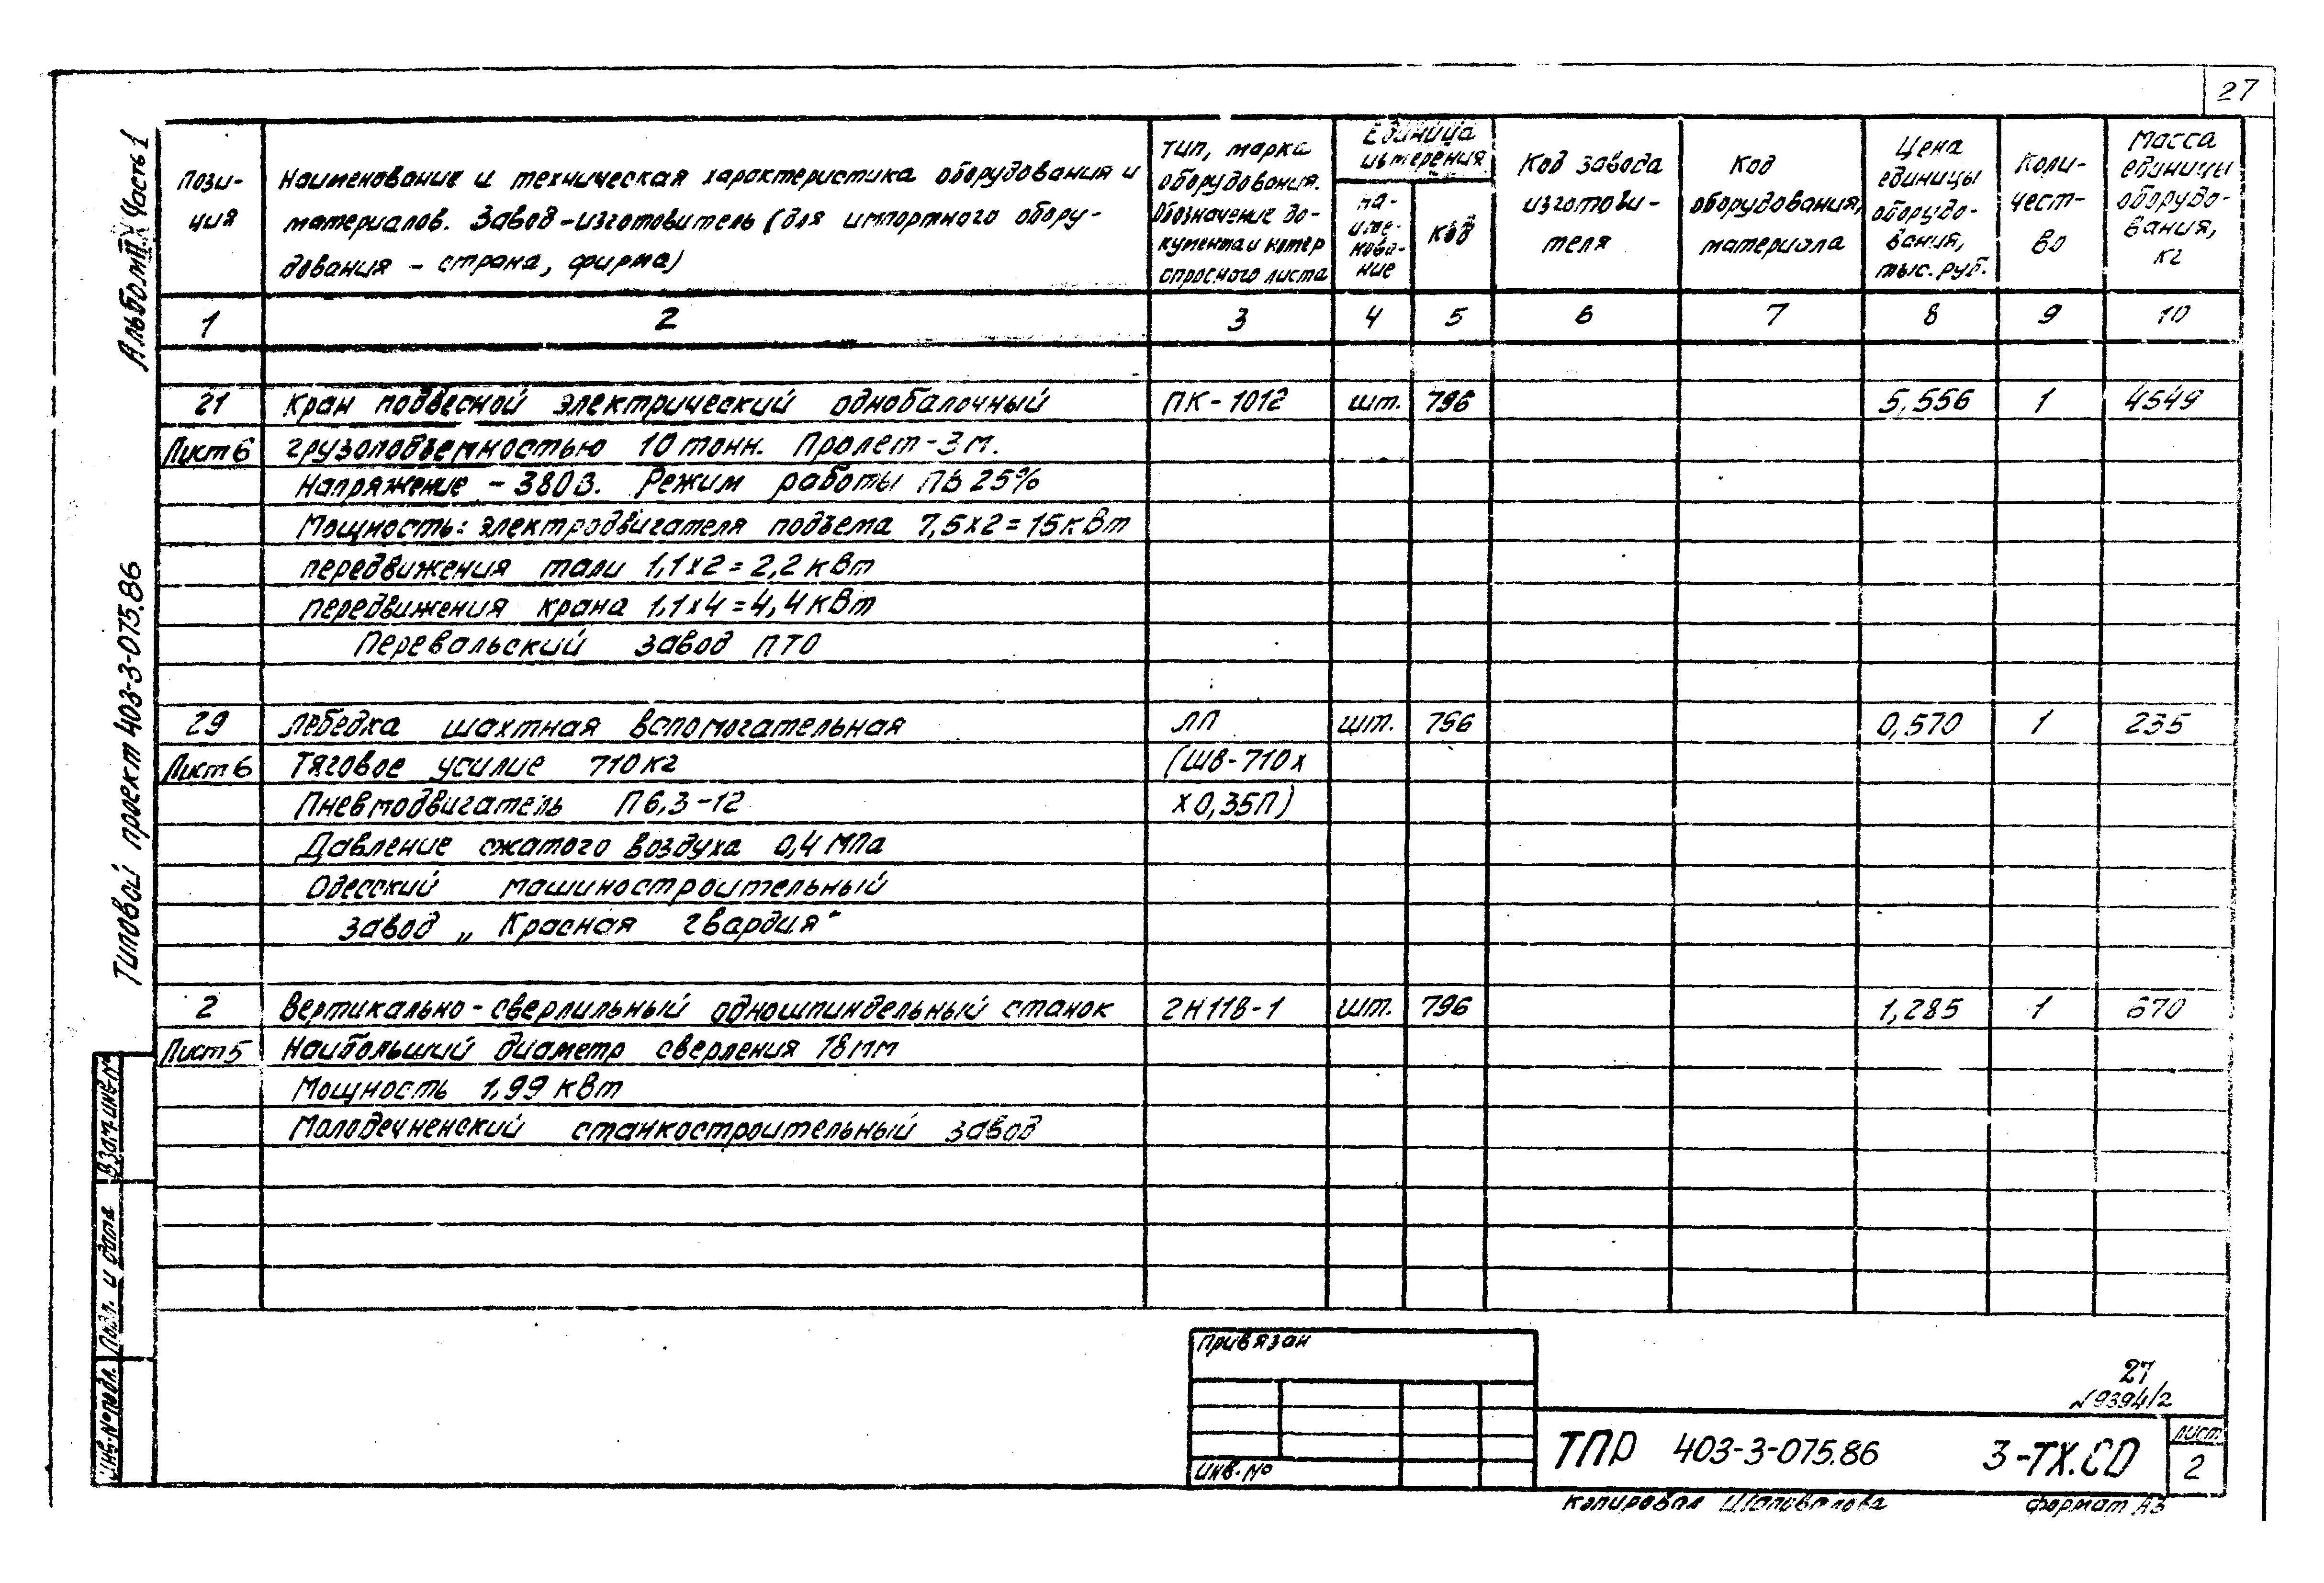 27
Альбом IX Часть 1
Типовой проект 403-3-075.86
Пози-
ция
Наименование и техническая характеристика оборудования и
материалов. Завод-изготовитель (для импортного обору-
дования - страна, фирма)
Тип, марка
оборудования.
Обозначение до-
кумента и номер
опросного листа
Единица
измерения
на-
име-
нова-
ние
код
Код завода
изготови-
теля
Код
оборудования,
материала
Цена
единицы
оборудо-
вания,
тыс. руб.
Коли-
чест-
во
Масса
единицы
оборудо-
вания,
кг
1 2 3 4 5 6 7 8 9 10
21 Кран подвесной электрический однобалочный ПК-1012 шт. 796 5,556 1 4549
Лист 6 грузоподъемностью 10 тонн. Пролет-3м.
Напряжение - 380В. Режим работы ПВ 25%
Мощность: электродвигателя подъема 7,5х2=15кВт
передвижения тали 1,1х2=2,2кВт
передвижения крана 1,1х4=4,4кВт
Перевальский завод ПТО
29 Лебедка шахтная вспомогательная ЛП шт. 796 0,570 1 235
Лист 6 Тяговое усилие 710кг (ШВ-710х
Пневмодвигатель П6,3-12 х0,35П)
Давление сжатого воздуха 0,4 МПа
Одесский машиностроительный
завод „Красная гвардия"
2 Вертикально-сверлильный одношпиндельный станок 2Н118-1 шт. 796 1,285 1 670
Лист 5 Наибольший диаметр сверления 18мм
Мощность 1,99 кВт
Молодечненский станкостроительный завод
Взам. инв. №
Подп. и дата
Инв. № подл.
Привязан
Инв. №
27
19394/2
ТПР 403-3-075.86 3-ТХ.СО
Лист
2
Копировал Шаповалова Формат А3